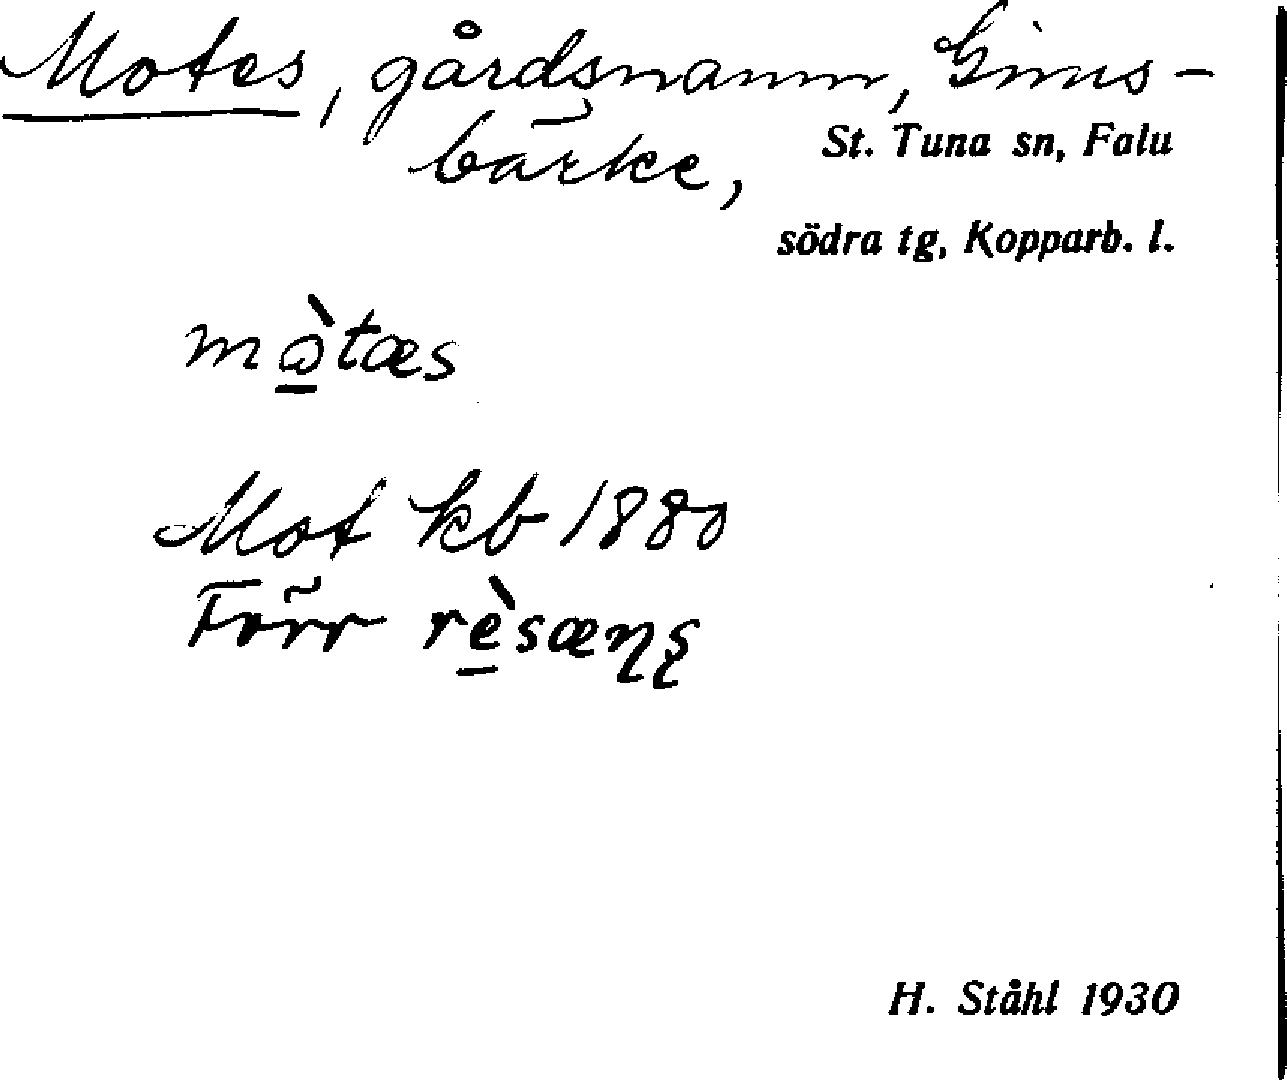 Motes, gårdsnamn, Gims-
bärke,
St. Tuna sn, Falu
södra tg, Kopparb. l.
mɷ̱̀tæs
Mot kb 1880
Förr rè̱sæɳʂ
H. Ståhl 1930